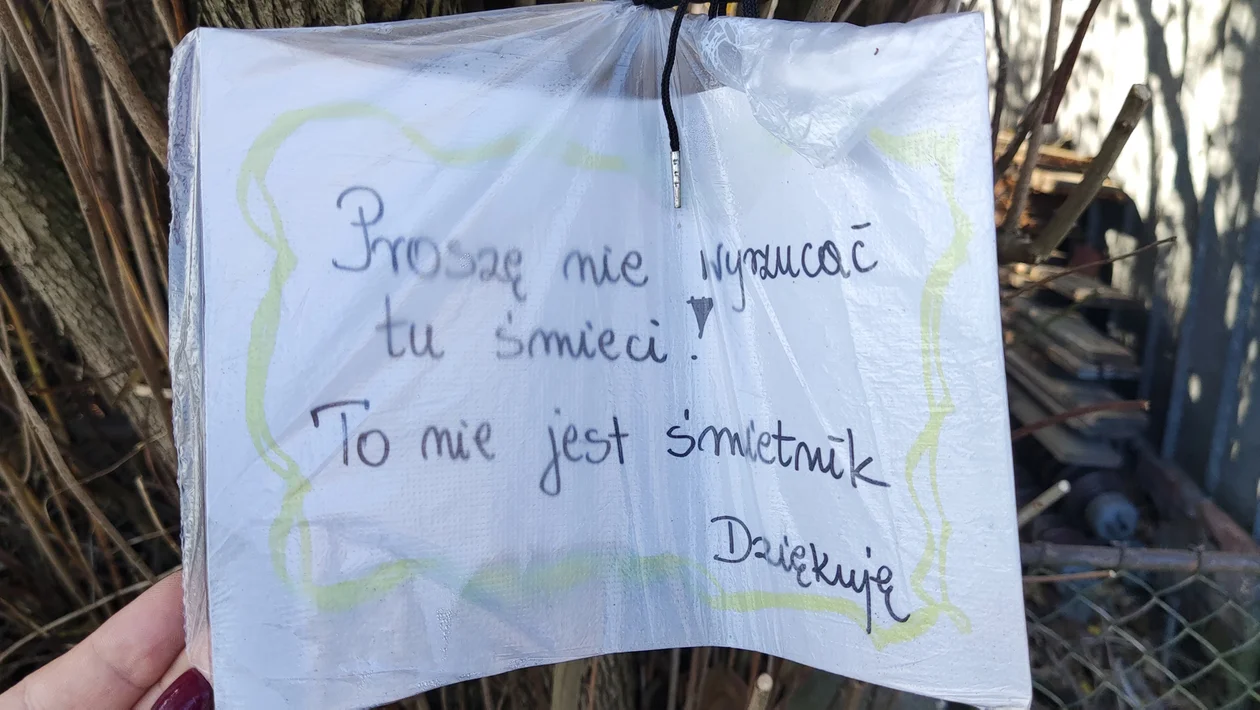 Proszę nie wyrzucać
tu śmieci!
To nie jest śmietnik
Dziękuję